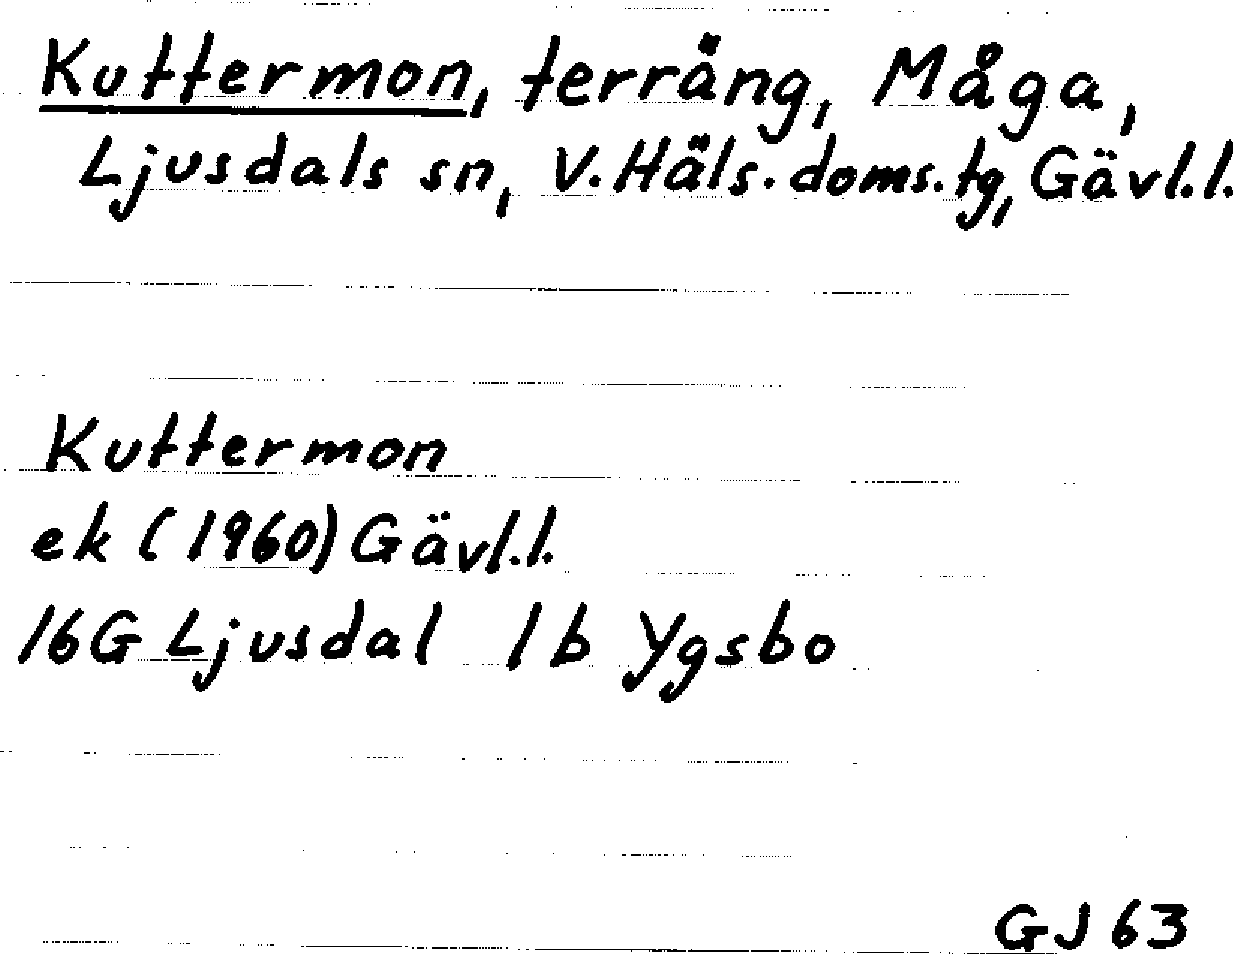 Kuttermon, terräng, Måga,
Ljusdals sn, V. Häls. doms. tg, Gävl.l.
Kuttermon
ek (1960) Gävl.l.
16G Ljusdal 1b Ygsbo
GJ 63